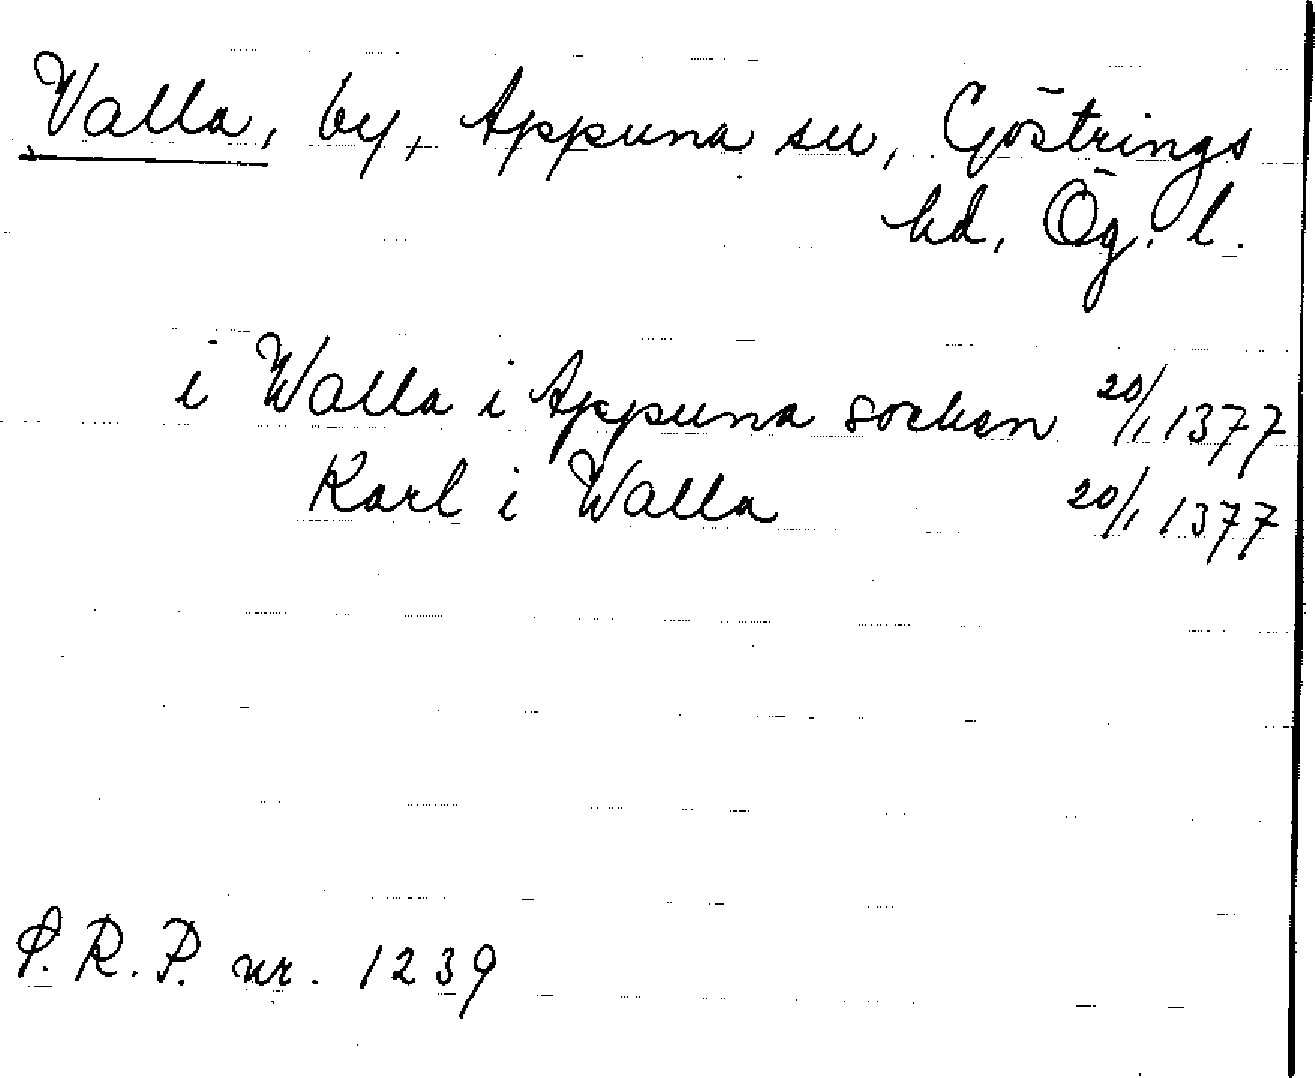 Valla, by, Appuna sn, Göstrings
hd, Ög. l.
i Walla i Appuna socken 20/1 1377
Karl i Walla 20/1 1377
P. R. P. nr. 1239